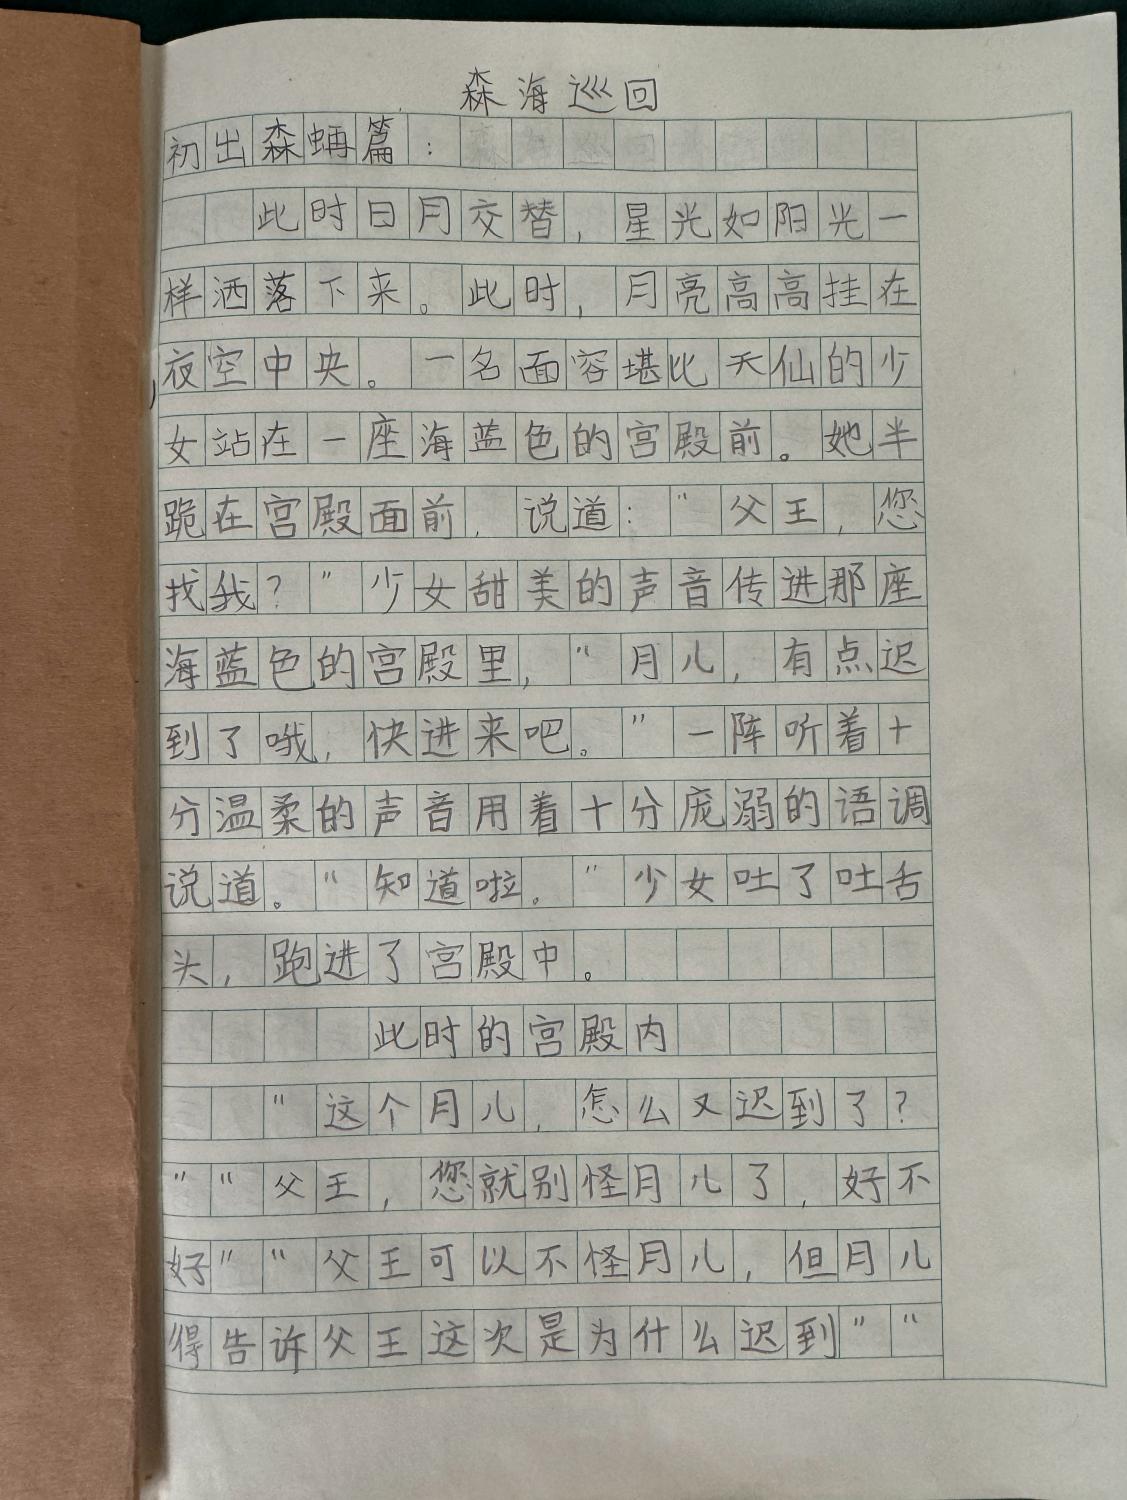 森海巡回
初出森蛹篇：
此时日月交替，星光如阳光一
样洒落下来。此时，月亮高高挂在
夜空中央。一名面容堪比天仙的少
女站在一座海蓝色的宫殿前。她半
跪在宫殿面前，说道：“父王，您
找我？”少女甜美的声音传进那座
海蓝色的宫殿里，“月儿，有点迟
到了哦，快进来吧。”一阵听着十
分温柔的声音用着十分庞溺的语调
说道。“知道啦。”少女吐了吐舌
头，跑进了宫殿中。
此时的宫殿内
“这个月儿，怎么又迟到了？
”“父王，您就别怪月儿了，好不
好”“父王可以不怪月儿，但月儿
得告诉父王这次是为什么迟到”“